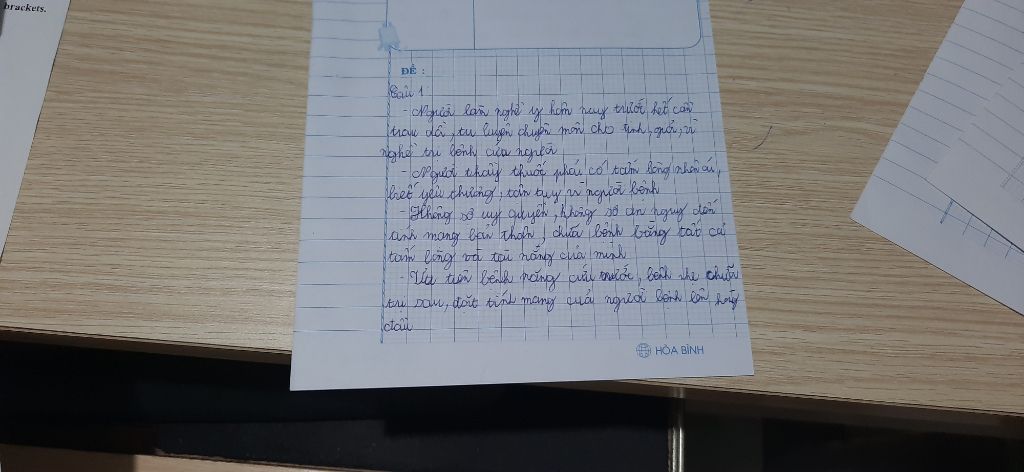 brackets.
ĐỀ :
Câu 1
- Người làm nghề y hôm nay trước hết cần
trau dồi, tu luyện chuyên môn cho tinh, giỏi, vì
nghề trị bệnh cứu người
- Người thầy thuốc phải có tấm lòng nhân ái,
biết yêu thương, tận tuỵ vì người bệnh
- Không sợ uy quyền, không sợ ản nguy đến
tính mạng bản thân, chữa bệnh bằng tất cả
tấm lòng và tài năng của mình
- Ưu tiên bệnh nặng cứu trước, bệnh nhẹ chữa
trị sau, đặt tính mạng của người bệnh lên hàng
đầu
HÒA BÌNH